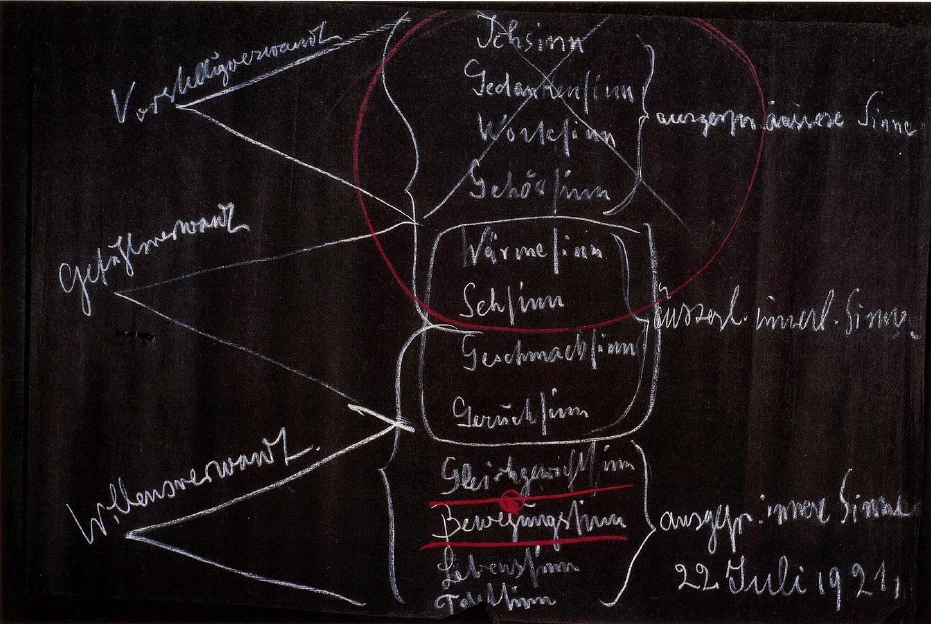 Vorstelligverwandt
Gefühlsverwandt
Willensverwandt.
Ichsinn
Gedankensinn
Wortsinn
Gehörsinn
Wärmesinn
Sehsinn
Geschmacksinn
Geruchsinn
Gleichgewichtsinn
Bewegungssinn
Lebenssinn
Tastsinn
ausgespr. äussere Sinne
innerl. Sinne.
ausgespr. innere Sinne
22 Juli 1921,